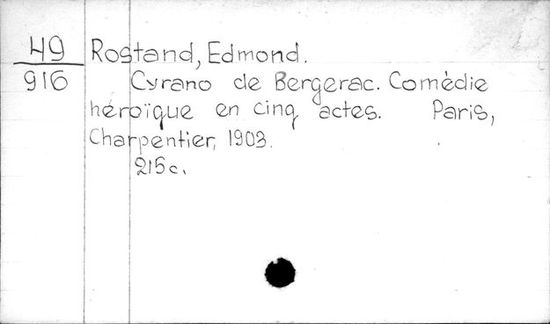 49 Rostand, Edmond.
916 Cyrano de Bergerac. Comédie
héroïque en cinq actes. Paris,
Charpentier, 1903.
215c.